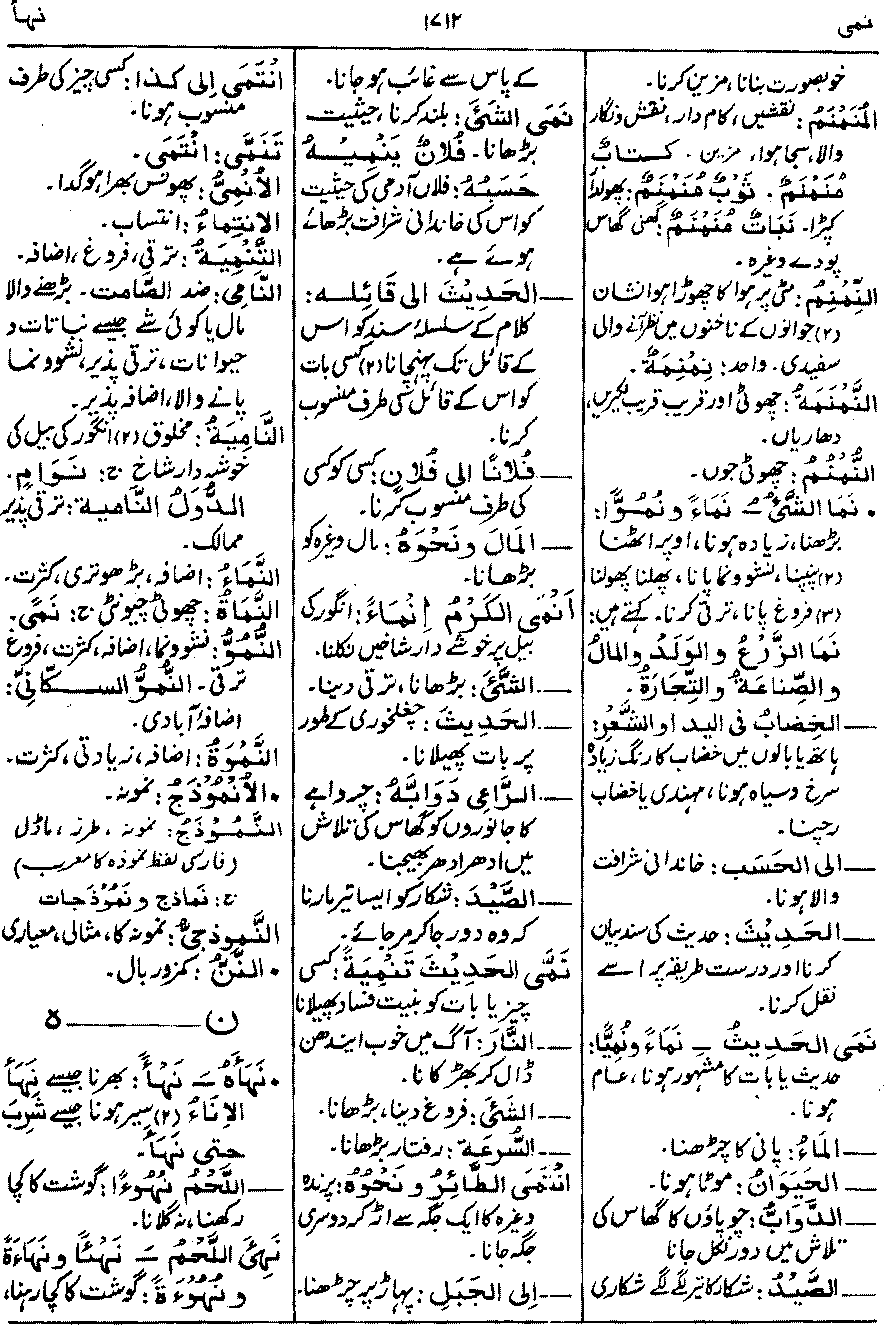 نمی
۱۷۱۲
نہأ
خوبصورت بنانا، مزین کرنا۔
المُنَمْنَمُ: نقشیں، کام دار، نقش ونگار
والا، سجا ہوا، مزین۔ کتابٌ
مُنَمْنَمٌ۔ ثَوْبٌ مُنَمْنَمٌ: پھولدار
کپڑا۔ نَبَاتٌ مُنَمْنَمٌ: گھنی گھاس
پودے وغیرہ۔
النِّمْنِمُ: مٹی پر ہوا کا چھوڑا ہوا نشان
(۲) جوانوں کے ناخنوں میں نظر آنے والی
سفیدی۔ واحد: نِمْنِمَةٌ۔
النَّمْنَمَةُ: چھوٹی اور قریب قریب لکیریں،
دھاریاں۔
النُّمْنُمُ: چھوٹی جوں۔
• نَمَا الشَّئُ ـُ نَمَاءً و نُمُوًّا:
بڑھنا، زیادہ ہونا، اوپر اٹھنا
(۲) پنپنا، نشو ونما پانا، پھلنا پھولنا
(۳) فروغ پانا، ترقی کرنا۔ کہتے ہیں:
نَمَا الزَّرْعُ و الوَلَدُ والمالُ
والصِّناعَةُ والتِّجارَةُ۔
— الخِضابُ فی الید او الشَّعْرِ:
ہاتھ یا بالوں میں خضاب کا رنگ زیادہ
سرخ وسیاہ ہونا، مہندی یا خضاب
رچنا۔
— الی الحَسَب: خاندانی شرافت
والا ہونا۔
— الحَدِیثَ: حدیث کی سند بیان
کرنا اور درست طریقہ پر اسے
نقل کرنا۔
نَمَی الحَدِیثُ ـِ نَمَاءً ونُمِیًّا:
حدیث یا بات کا مشہور ہونا، عام
ہونا۔
— المَاءُ: پانی کا چڑھنا۔
— الحَیَوَانُ: موٹا ہونا۔
— الدَّوَابُّ: چوپاؤں کا گھاس کی
تلاش میں دور نکل جانا
— الصَّیْدُ: شکار کا تیر لگے لگے شکاری
کے پاس سے غائب ہوجانا۔
نَمَی الشَّیْءَ: بلند کرنا، حیثیت
بڑھانا۔ فُلَانٌ یَنْمِیْهُ
حَسَبُهُ: فلاں آدمی کی حیثیت
کو اس کی خاندانی شرافت بڑھائے
ہوئے ہے۔
— الحَدِیْثَ الی قَائِلِه:
کلام کے سلسلۂ سند کو اس
کے قائل تک پہنچانا (۲) کسی بات
کو اس کے قائل کی طرف منسوب
کرنا۔
— فُلَانًا الی فُلَانٍ: کسی کو کسی
کی طرف منسوب کرنا۔
— المَالَ ونَحْوَهُ: مال وغیرہ کو
بڑھانا۔
أَنْمَی الکَرْمُ إِنْمَاءً: انگور کی
بیل پر خوشے دار شاخیں نکلنا۔
— الشَّئَ: بڑھانا، ترقی دینا۔
— الحَدِیثَ: چغلخوری کے طور
پر بات پھیلانا۔
— الرَّاعِی دَوَابَّهُ: چرواہے
کا جانوروں کو گھاس کی تلاش
میں ادھر ادھر بھیجنا۔
— الصَّیْدَ: شکار کو ایسا تیر مارنا
کہ وہ دور جاکر مرجائے۔
نَمَّی الحَدِیْثَ تَنْمِیَةً: کسی
چیز یا بات کو بنیت فساد پھیلانا
— النَّارَ: آگ میں خوب ایندھن
ڈال کر بھڑکانا۔
— الشَّئَ: فروغ دینا، بڑھانا۔
— السُّرعَةَ: رفتار بڑھانا۔
انْتَمَی الطَّائِرُ و نَحْوُهُ: پرندہ
وغیرہ کا ایک جگہ سے اڑ کر دوسری
جگہ جانا۔
— إِلی الجَبَلِ: پہاڑ پر چڑھنا۔
انْتَمَی إِلی کذا: کسی چیز کی طرف
منسوب ہونا۔
تَنَمَّی: انْتَمَی۔
الأُنْمِیُّ: پھونس بھرا ہوگدا۔
الانتِماءُ: انتساب۔
التَّنْمِیَةُ: ترقی، فروغ، اضافہ۔
النَّامِی: ضد الصَّامت۔ بڑھنے والا
مال یا کوئی شے جیسے نباتات و
حیوانات، ترقی پذیر، نشو ونما
پانے والا، اضافہ پذیر۔
النَّامِیَةُ: مخلوق (۲) انگور کی بیل کی
خوشہ دار شاخ ج: نَوَامٍ۔
الدُّوَلُ النَّامیة: ترقی پذیر
ممالک۔
النَّمَاءُ: اضافہ، بڑھوتری، کثرت۔
النَّمَاةُ: چھوٹی چیونٹی ج: نَمًی۔
النُّمُوُّ: نشو ونما، اضافہ، کثرت، فروغ
ترقی۔ النُّمُوُّ السکّانِیُّ:
اضافۂ آبادی۔
النَّمْوَةُ: اضافہ، زیادتی، کثرت۔
• الأُنْمُوْذَجُ: نمونہ۔
النَّمُوْذَجُ: نمونہ، طرز، ماڈل
(فارسی لفظ نموذہ کا معرب)
ج: نَماذج و نَمُوْذَجات
النَّموذجیُّ: نمونہ کا، مثالی، معیاری
• النَّنُّ: کمزور بال۔
ن ——— ہ
• نَهَأَهُ ـَ نَهْأً: بھرنا جیسے نَهَأَ
الإِنَاءُ (۲) سیر ہونا جیسے شَرِبَ
حتی نَهَأَ۔
— اللَّحْمُ نُهُوءًا: گوشت کا کچا
رکھنا، نہ گلانا۔
نَهِئَ اللَّحْمُ ـَ نَهْئًا و نَهَاءَةً
و نُهُوْءَةً: گوشت کا کچا رہنا،